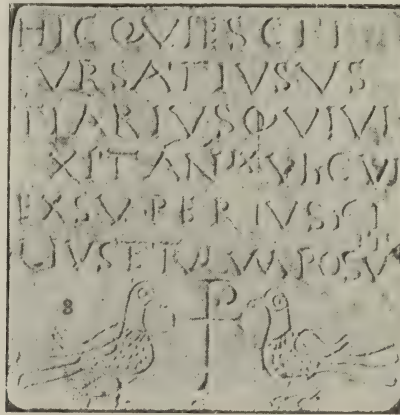 HIC QVIESCI
VRSATIVS VS
TIARIVS QVI VI
XIT AN CVI
EXSVPERIVS FI
LIVS TETVLVM POSV
8